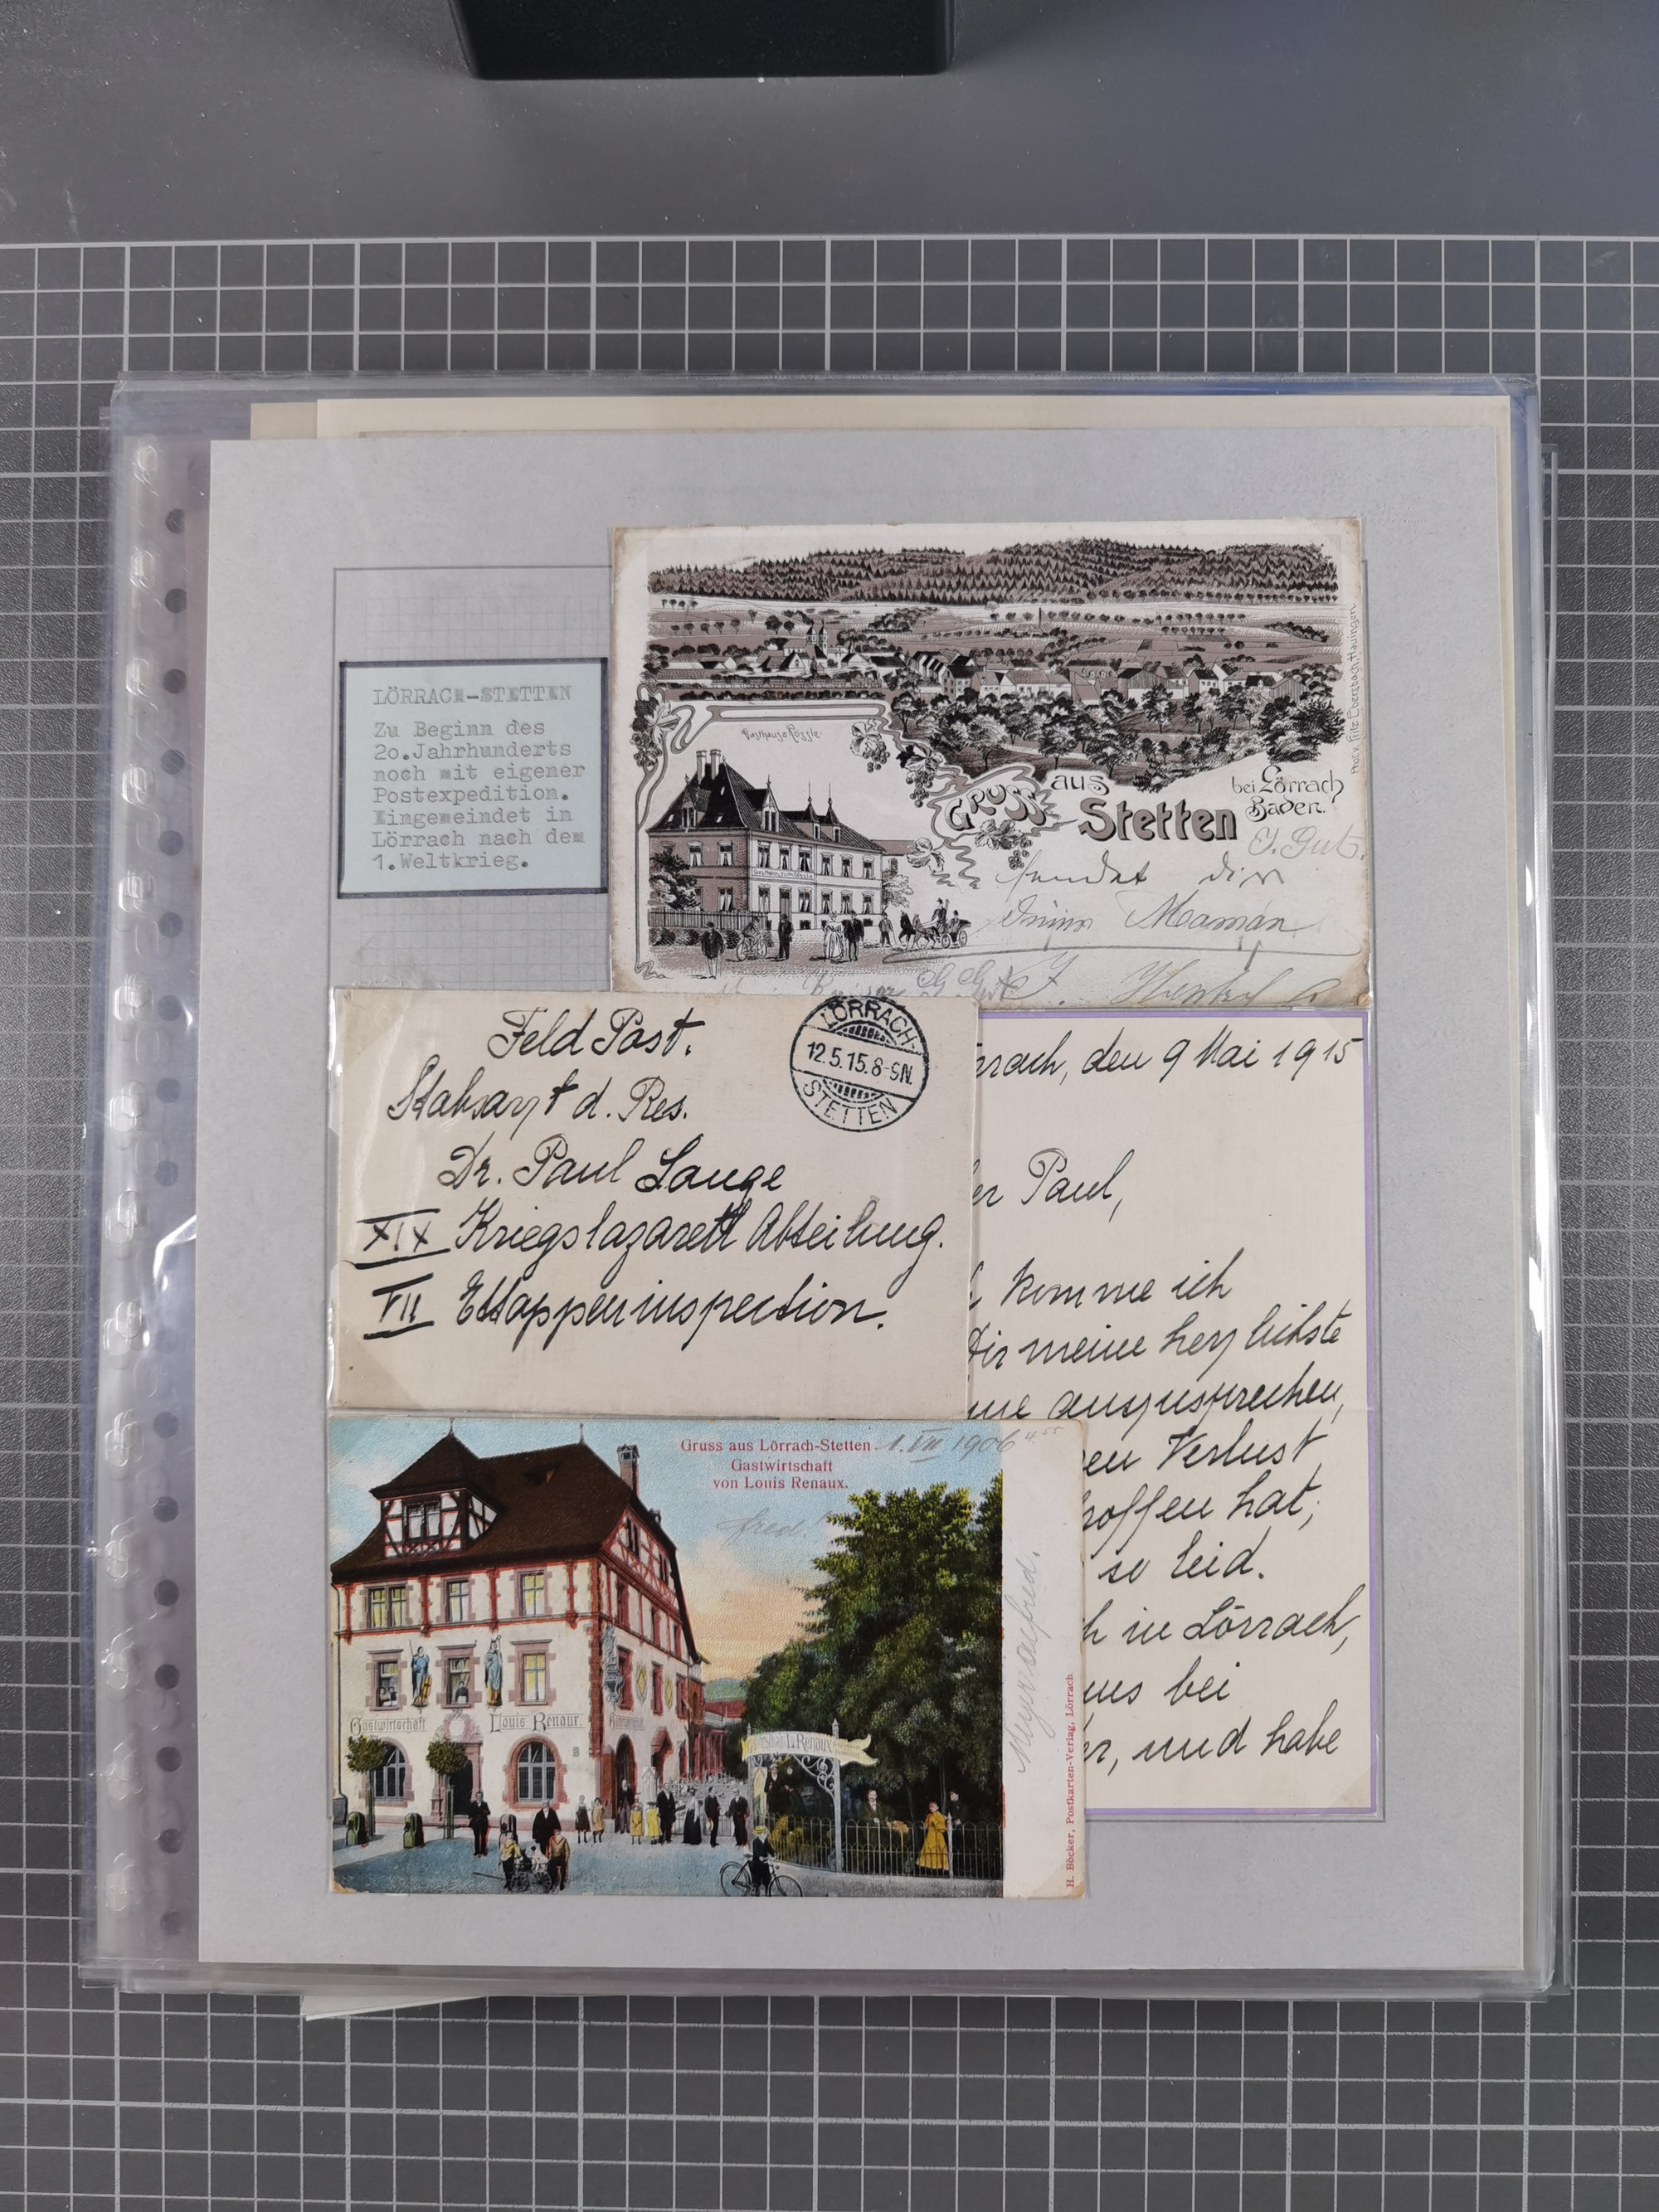 LÖRRACH-STETTEN
Zu Beginn des
2o.Jahrhunderts
noch mit eigener
Postexpedition.
Eingemeindet in
Lörrach nach dem
1.Weltkrieg.
Gasthaus z. Rössle
GRUSS aus
Stetten
bei Lörrach
Baden.
sendet dir
Deine Maman
Feld Post.
Stabsarzt d. Res.
Dr. Paul Lange
XIX Kriegslazarett Abteilung.
VII Ettappeninspection.
LÖRRACH-
12.5.15.8-9N.
STETTEN
rrach, den 9 Mai 1915
er Paul,
komme ich
Dir meine herzlichste
me auszusprechen,
en Verlust
roffen hat;
so leid.
h in Lörrach,
uns bei
er, und habe
Gruss aus Lörrach-Stetten 1. VII 1906
Gastwirtschaft
von Louis Renaux.
fred.
Gastwirtschaft Louis Renaux
L. Renaux
H. Böcker, Postkarten-Verlag, Lörrach